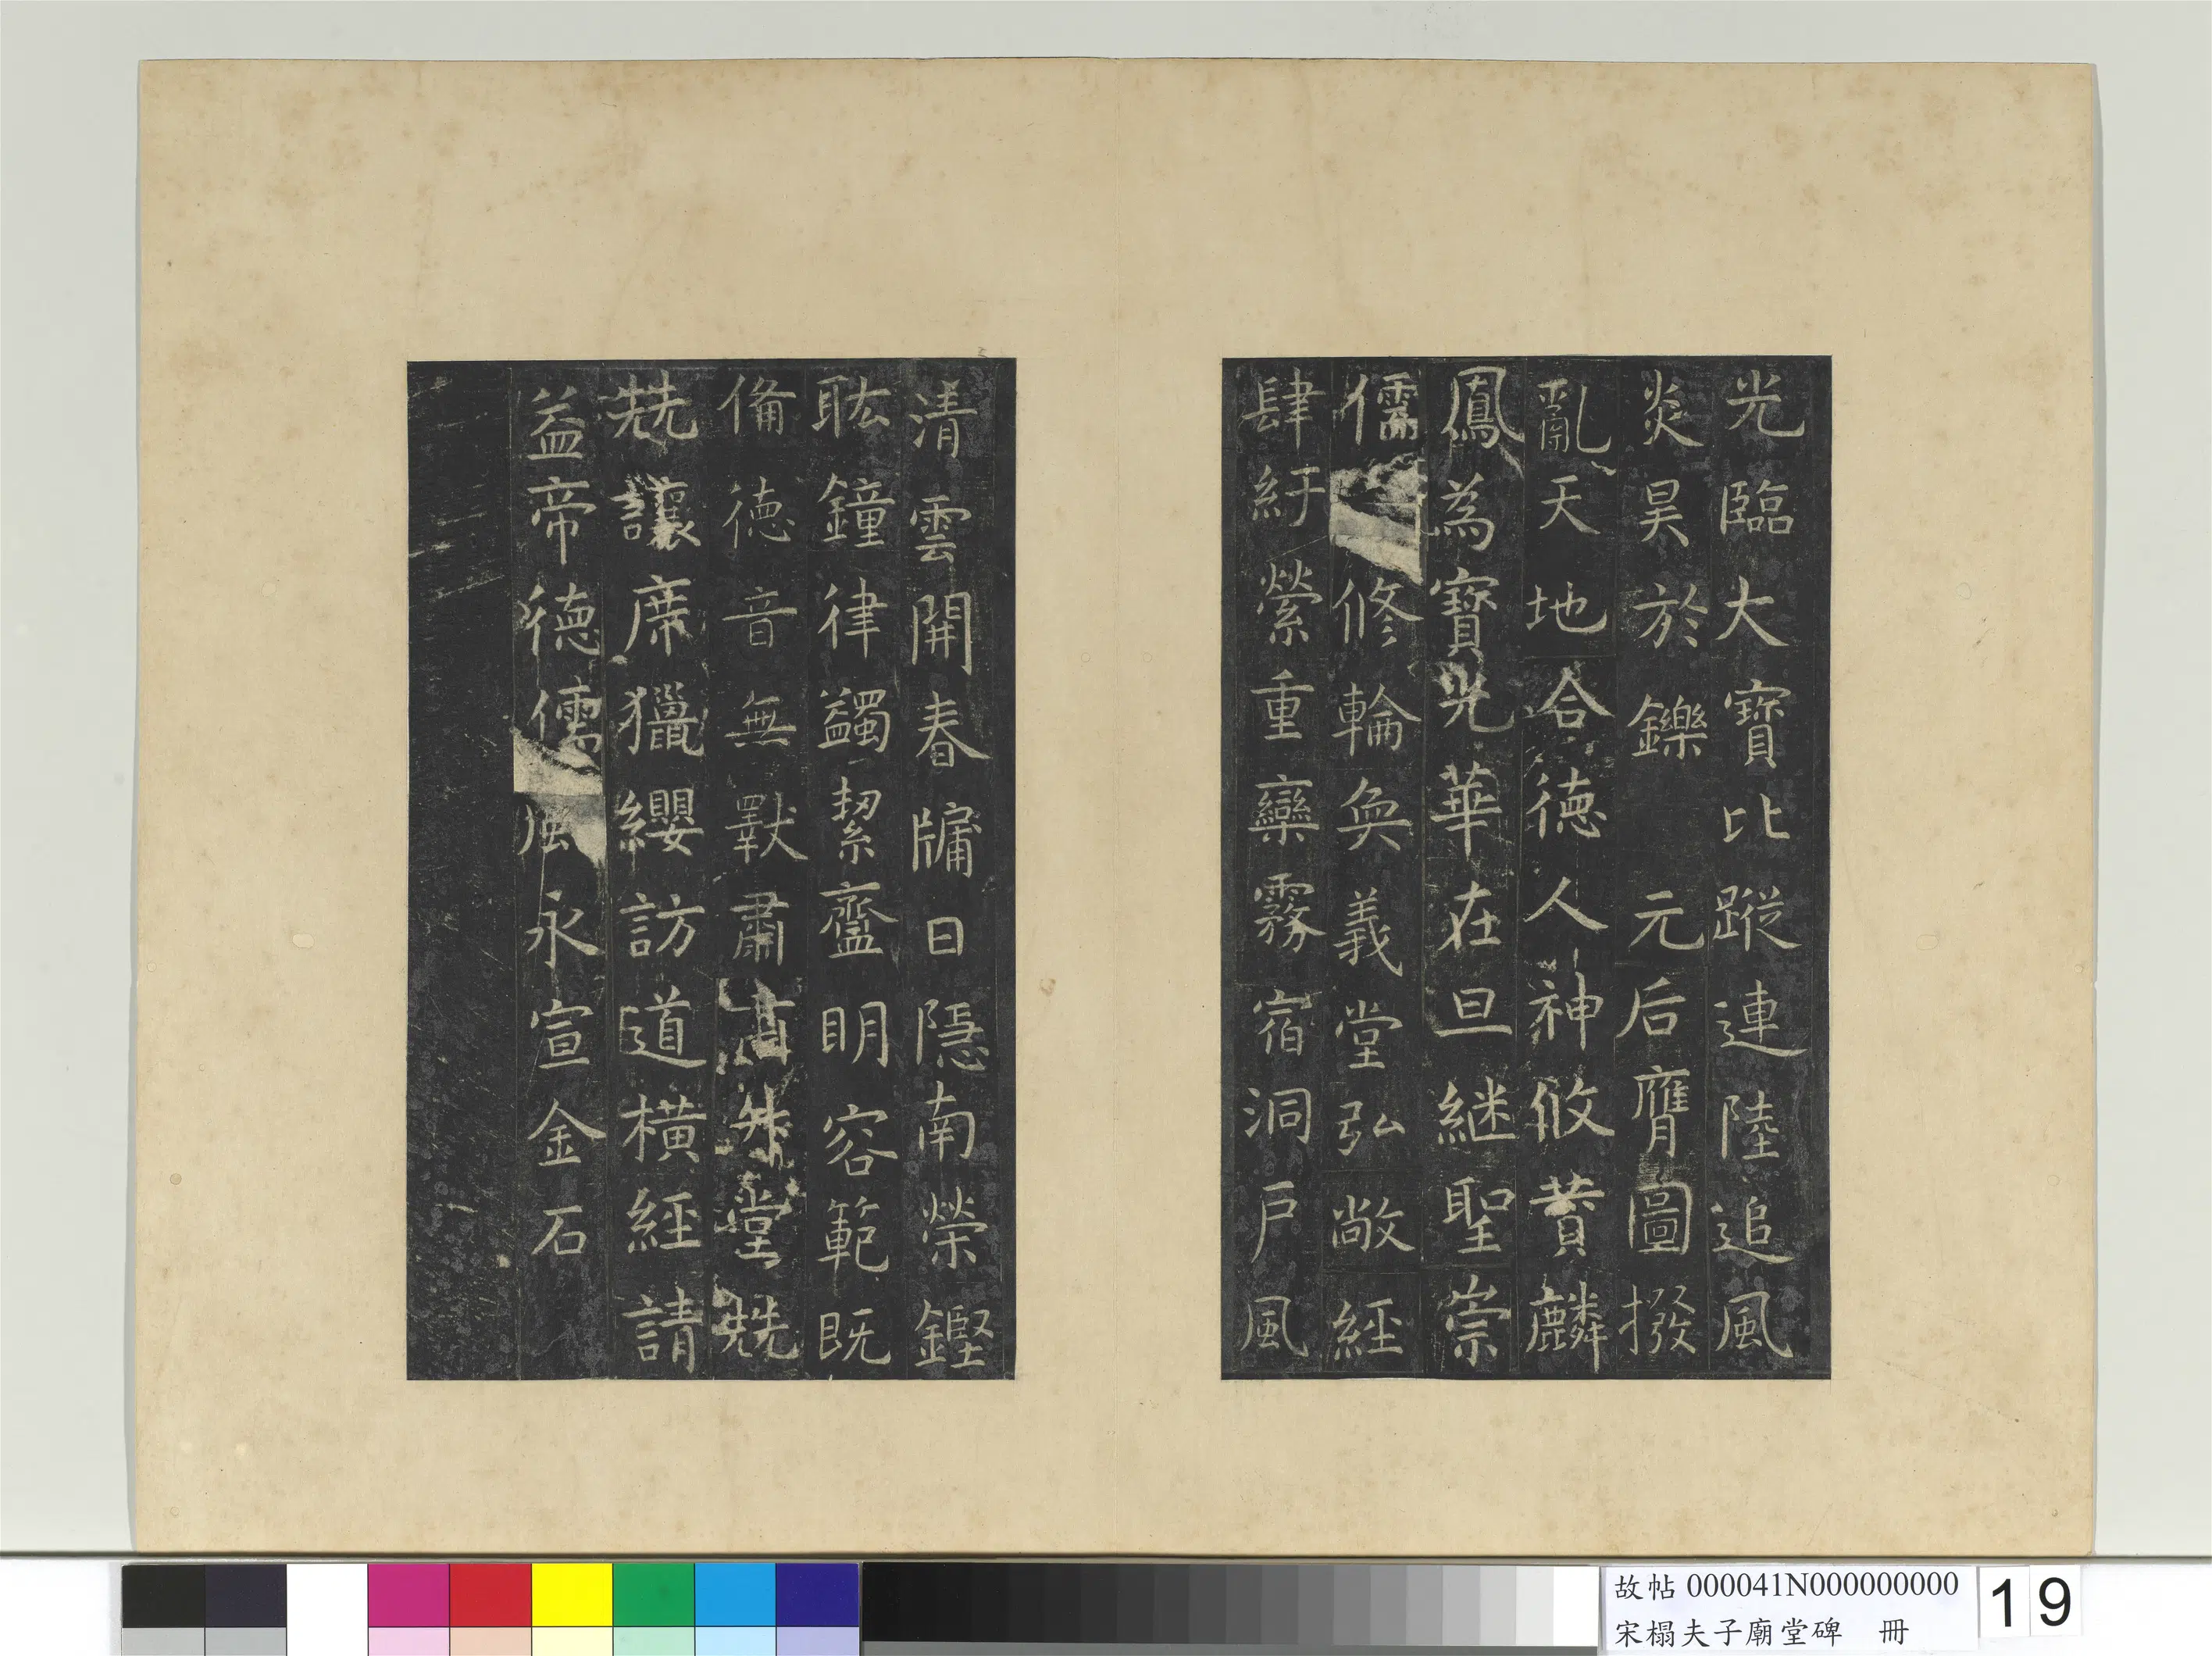 光臨大寶比蹤連陸追風
炎昊於鑠 元后膺圖撥
亂天地合德人神攸贊麟
鳳為寶光華在旦継聖崇
儒修輪奐義堂弘敞経
肆紆縈重欒霧宿洞戶風
清雲開春牖日隱南榮鏗
耾鐘律蠲絜齍明容範既
備德音無斁肅堂兢
兢讓席獵纓訪道橫経請
益帝德儒風永宣金石
故帖 000041N000000000
宋榻夫子廟堂碑 冊
19